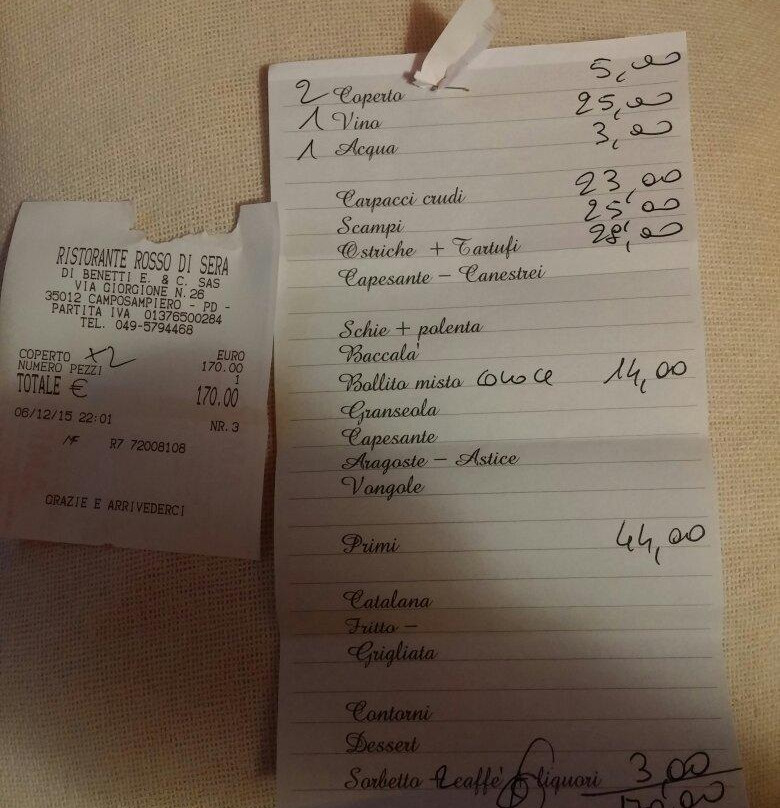 RISTORANTE ROSSO DI SERA
DI BENETTI E. & C. SAS
VIA GIORGIONE N.26
35012 CAMPOSAMPIERO - PD -
PARTITA IVA 01376500284
TEL. 049-5794468
EURO
COPERTO x2 170.00
NUMERO PEZZI 1
TOTALE € 170.00
06/12/15 22:01 NR.3
MF R7 72008108
GRAZIE E ARRIVEDERCI
2 Coperto 5,00
1 Vino 25,00
1 Acqua 3,00
Carpacci crudi 23,00
Scampi 25,00
Ostriche + Tartufi 28,00
Capesante - Canestrei
Schie + polenta
Baccalà
Bollito misto 14,00
Granseola
Capesante
Aragoste - Astice
Vongole
Primi 44,00
Catalana
Fritto -
Grigliata
Contorni
Dessert
Sorbetto 2 caffè liquori 3,00
170,00